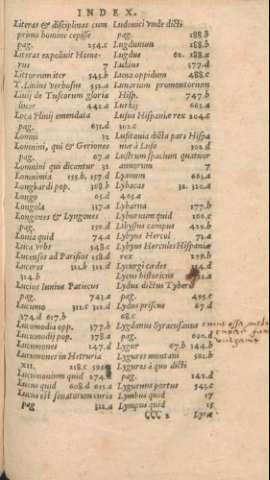 INDEX.
Literas & disciplinas cum
primo homine cepisse
pag. 254.c
Literas expoluit Home-
rus 7
Littorum iter 545.b
T. Liuius verbosus 551.a
Liuij de Tuscorum gloria
locus 442.a
Loca Plinij emendata
pag. 631.d
Lomni 32
Lomnini, qui & Geriones
pag. 67.a
Lomnini qui dicantur 32
Lomnimia 155.b, 157.d
Longbardi pop. 308.b
Longo 65.d
Longola 157.a
Longones & Lyngones
pag. 150.a
Lonia quid 74.a
Luca vrbs 348.c
Lucensis ad Parisios 158.d
Luceres 312.b 312.d
314.b
Lucius Iunius Patiecus
pag. 743.a
Lucumo 312.c 312.d
374.d 617.b
Lucumodia opp. 377.b
Lucumodij pop. 378.a
Lucumones 147.d
Lucumones in Hetruria
XII. 218.c
Lucumonium quid 274
Lucus quid 608.d 615.a
Lucus est senatorum curia
pag 312.a
Ludouici vnde dicti
pag. 188.b
Lugdunum 188.b
Lugdus 62. 188.a
Luduus 177.d
Luna oppidum 488.c
Lunarium promontorium
Hisp. 747.b
Lurkij 661.a
Lusus Hispaniæ rex 204.c
302.c
Lusitania dicta pars Hispa
niæ à Luso 302.d
Lustrum spacium quatuor
annorum 7
Lyamum 661.a
Lybacas 32. 320.a
405.a
Lybarna 177.b
Lyborum quid 100.c
Libyssus campus 421.b
Lybyus Hercul 71.a
Lybyus Hercules Hispaniæ
rex 259.b
Lycurgi cædes 314.d
Lycus historicus 521.a
Lydus dictus Tyber
pag. 495.c
Lydus priscus 67.d
68.c
Lygdamus Syracusanus
pag. 602.d
Lygur 67.b 144.b
Lygures montani 501.b
Lygures à quo dicti
pag. 142.d
Lygurnus portus 543.c
Lymbus quid 17
Lympus quid 15
CCC 2 Lyræ